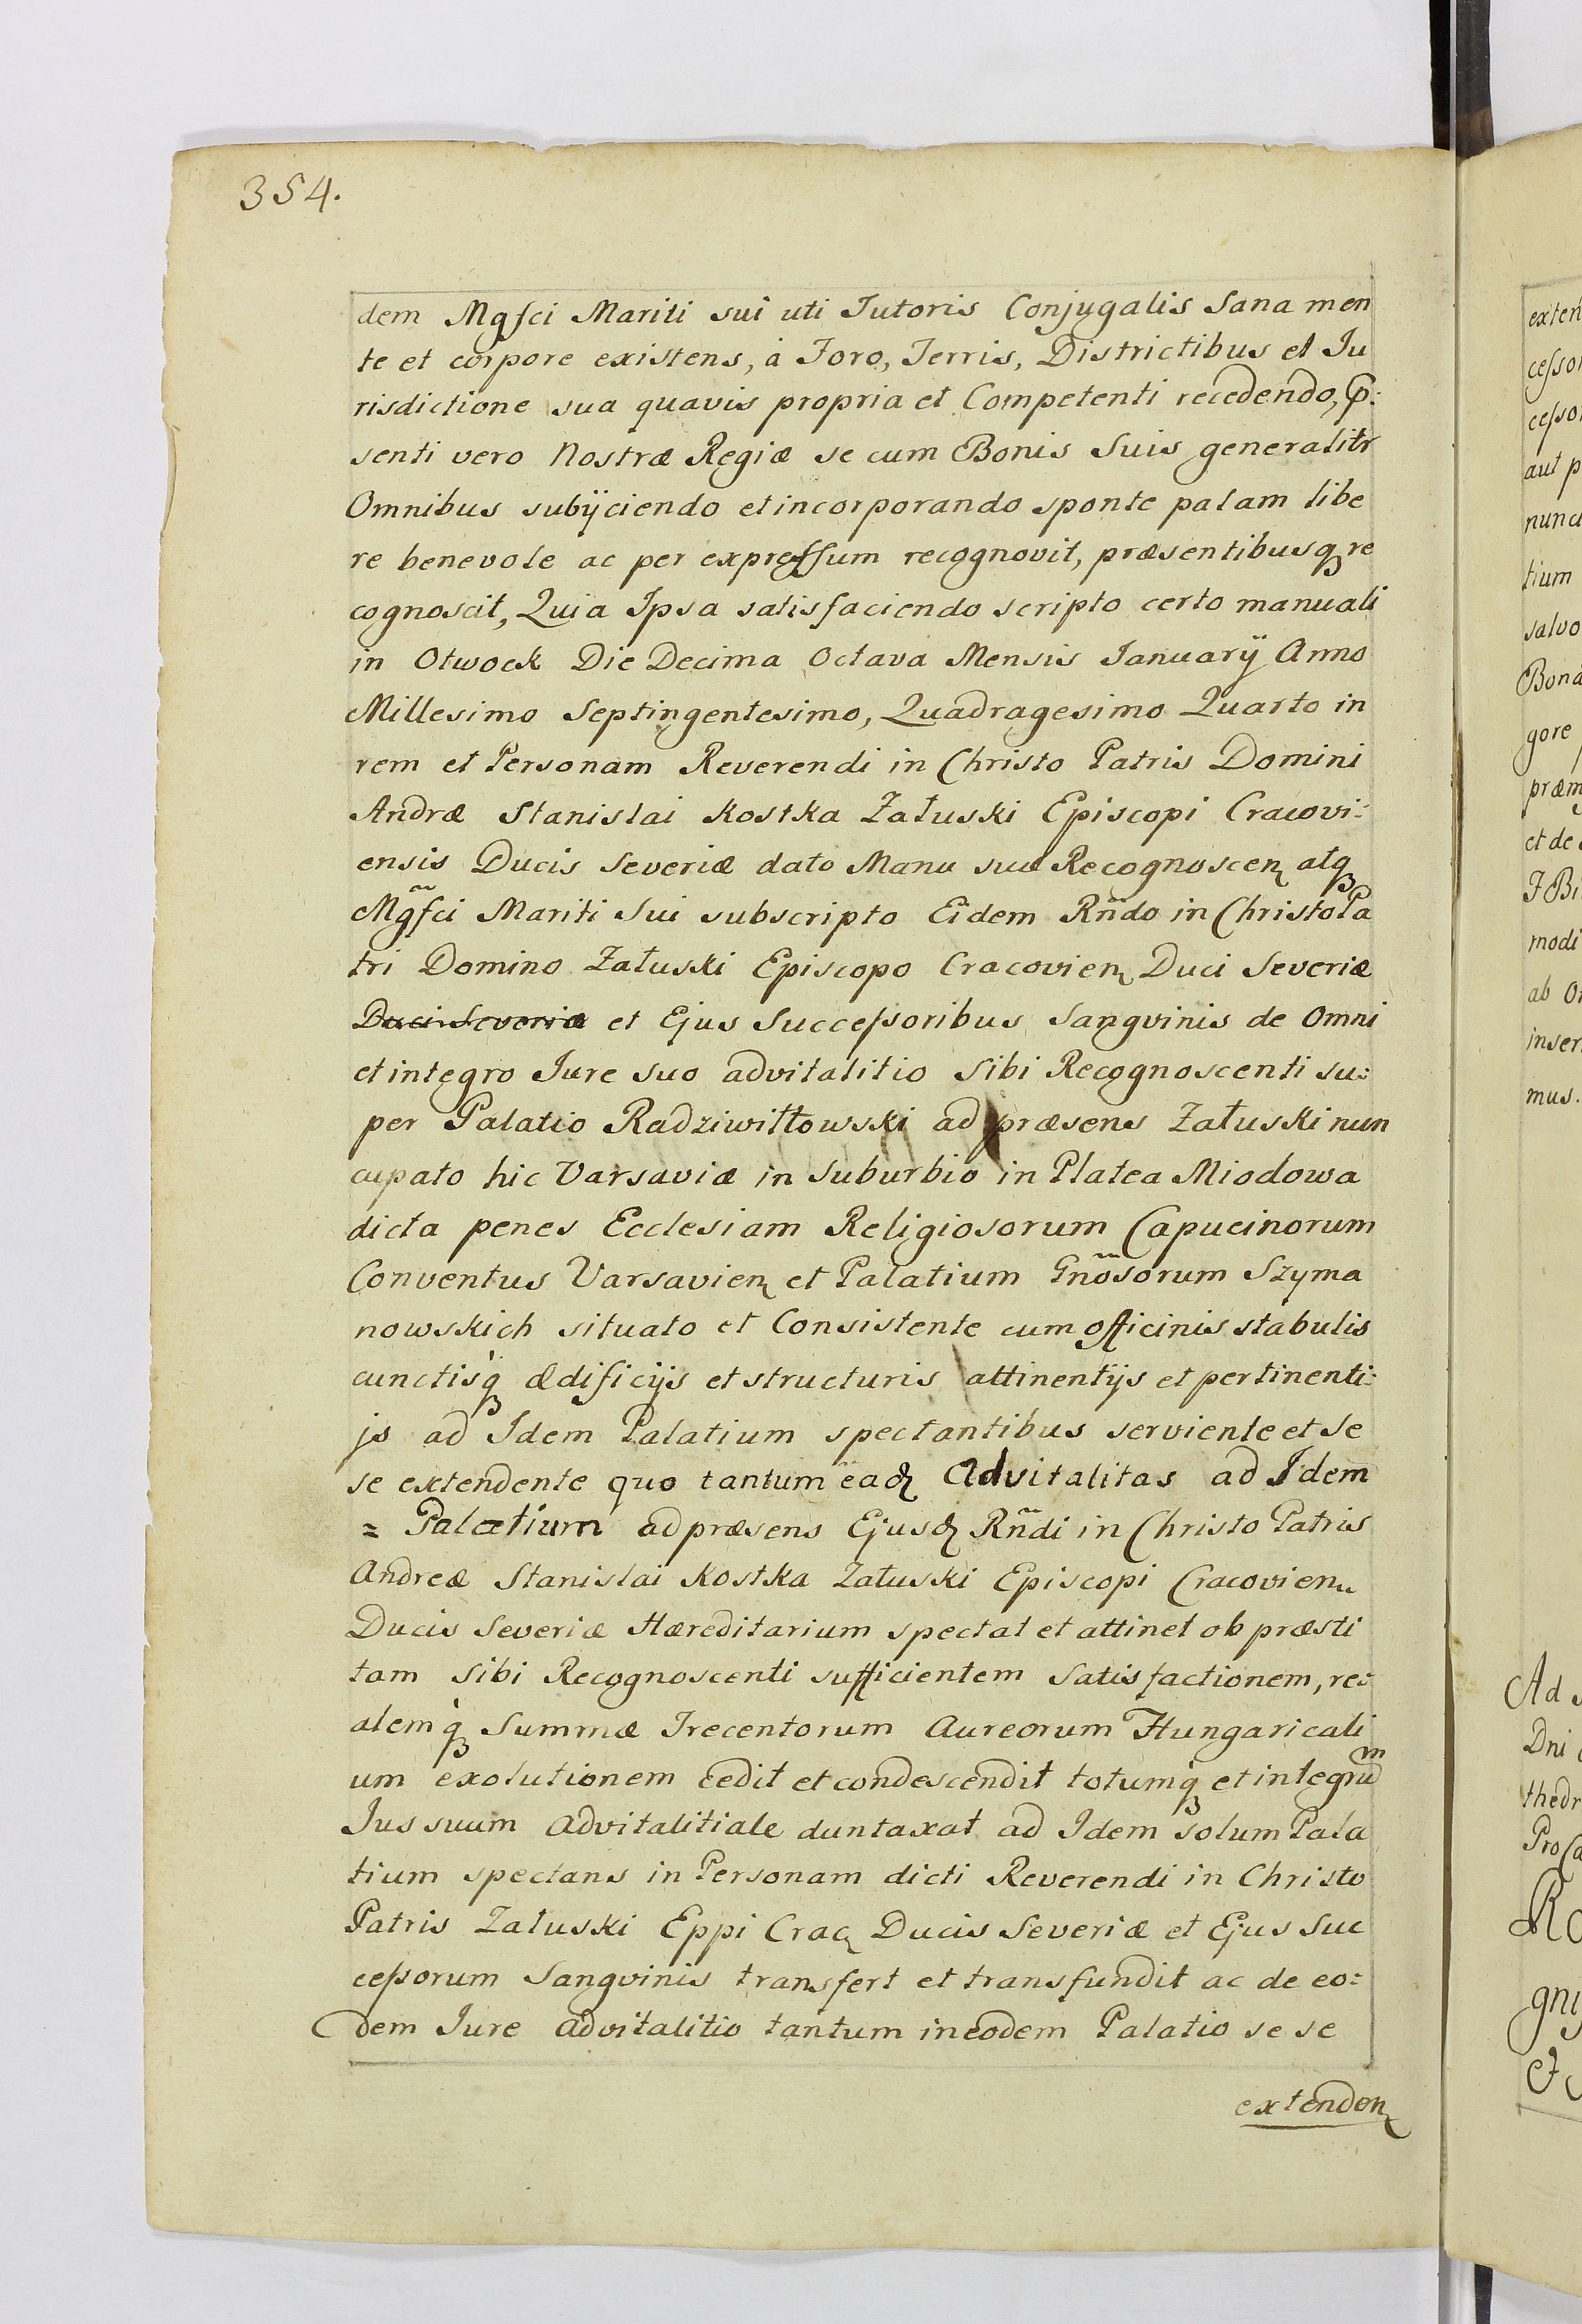 354.
dem Mgfci Mariti sui uti Tutoris Conjugalis Sana men
te et corpore existens, à Foro, Terris, Districtibus et Ju
risdictione sua quavis propria et Competenti recedendo, p:
senti vero Nostræ Regiæ se cum Bonis Suis generalitr
Omnibus subijciendo et incorporando sponte palam libe
re benevole ac per expressum recognovit, præsentibusq re
cognoscit, Quia Ipsa satisfaciendo scripto certo manuali
in Otwock Die Decima Octava Mensis Januarij Anno
Millesimo Septingentesimo, Quadragesimo Quarto in
rem et Personam Reverendi in Christo Patris Domini
Andræ Stanislai Kostka Załuski Episcopi Cracovi:
ensis Ducis Severiæ dato Manu sua Recognoscen atq
Mgfci Mariti Sui subscripto Eidem Rñdo in Christo Pa
tri Domino Załuski Episcopo Cracovien Duci Severiæ
Duci Severiæ et Ejus Successoribus Sangvinis de Omni
et integro Jure suo advitalitio Sibi Recognoscenti su:
per Palatio Radziwiłłowski ad præsens Załuski nun
cupato hic Varsaviæ in Suburbio in Platea Miodowa
dicta penes Ecclesiam Religiosorum Capucinorum
Conventus Varsavien et Palatium Gnõsorum Szyma
nowskich situato et Consistente cum officinis stabulis
cunctisq́ ædificijs et structuris attinentijs et pertinenti:
js ad Idem Palatium spectantibus serviente et Se
se extendente quo tantum ead Advitalitas ad Idem
= Palatium ad præsens Ejusd Rñdi in Christo Patris
Andreæ Stanislai Kostka Załuski Episcopi Cracovien
Ducis Severiæ Hæreditarium spectat et attinet ob præsti
tam Sibi Recognoscenti sufficientem Satisfactionem, re:
alemq́ Summæ Trecentorum Aureorum Hungaricali
um exolutionem cedit et condescendit totumq́ et integrum
Jus suum Advitalitiale duntaxat ad Idem solum Pala
tium spectans in Personam dicti Reverendi in Christo
Patris Załuski Eppi Crac Ducis Severiæ et Ejus Suc
cessorum Sangvinis transfert et transfundit ac de eo:
dem Jure Advitalitio tantum in eodem Palatio se se
extenden
exten
cessor
cesso
aut p
nunc
tium
salvo
Bona
gore
præm
et de
modi
ab O
inser
mus.
Ad
Dni
thedr
gni